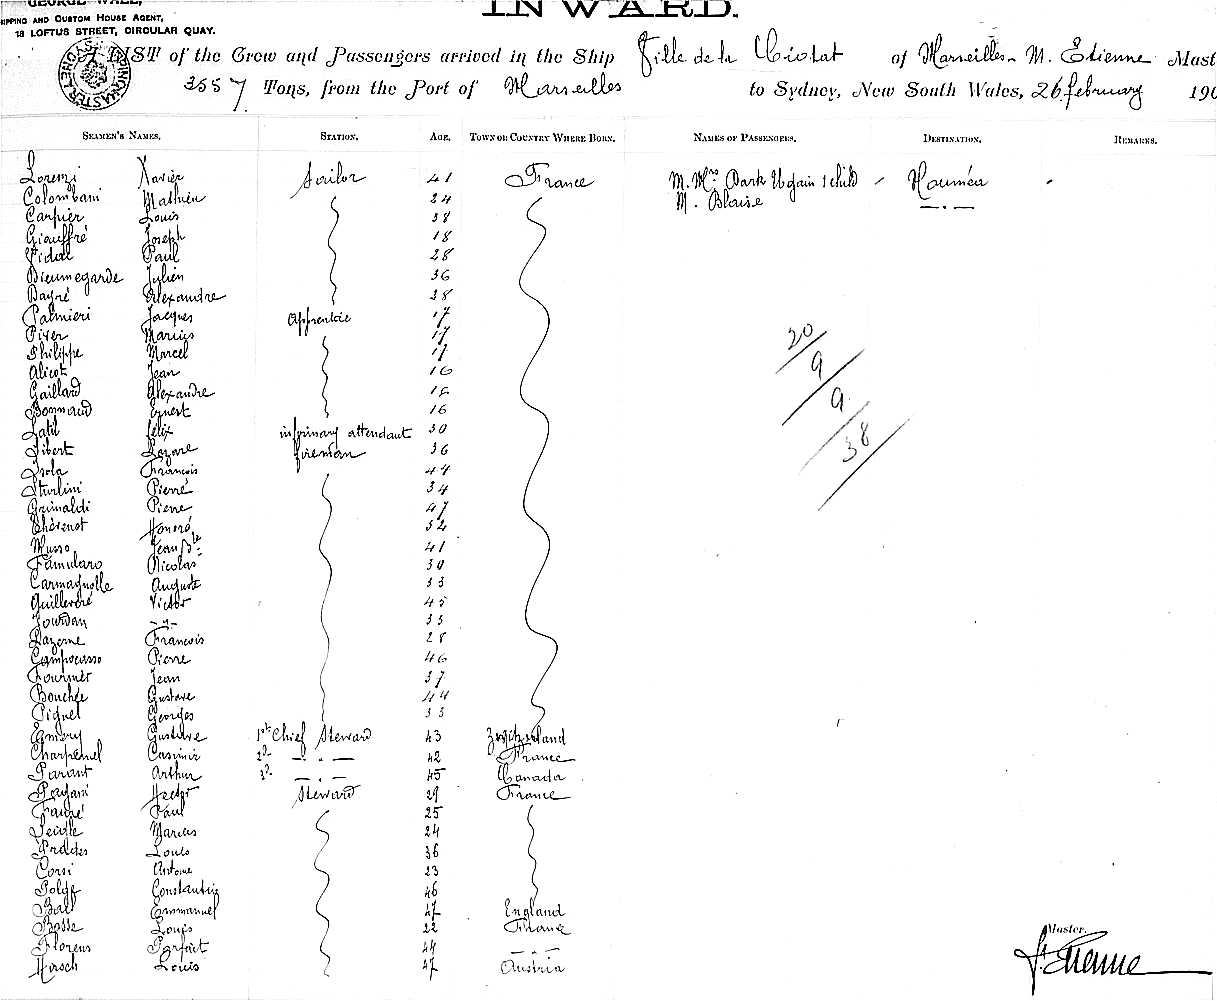 GEORGE WALL,
IPPING AND CUSTOM HOUSE AGENT,
18 LOFTUS STREET, CIRCULAR QUAY.
INWARD.
LIST of the Crew and Passengers arrived in the Ship Ville de la Ciotat of Marseilles M. Etienne Mast
3557 Tons, from the Port of Marseilles to Sydney, New South Wales, 26 february 190
SEAMEN'S NAMES. STATION. AGE. TOWN OR COUNTRY WHERE BORN. NAMES OF PASSENGERS. DESTINATION. REMARKS.
Lorenzi Xavier Sailor 41 France M. Mrs Dark Ugain 1 child Nouméa
Colombani Mathieu 24 M. Blaise —.—
Carpier Louis 38
Giauffré Joseph 18
Vidal Paul 28
Dieumegarde Julien 36
Bayré Alexandre 38
Palmieri Jacques Apprentice 17
Piver Marius 17
Philippe Marcel 17
Alicot Jean 16
Gaillard Alexandre 16
Bonnaud Ernest 16
Latil Félix infirmary attendant 30
Jibert Lazare fireman 36
Isola François 44
Sturlini Pierre 34
Grimaldi Pierre 47
Thérenot Honoré 32
Musso Jean Bte 41
Famularo Nicolas 30
Carmagnolle Auguste 33
Guilleveré Victor 45
Jourdan —"— 33
Lazerne François 28
Campocasso Pierre 46
Fournier Jean 37
Bouchée Gustave 44
Piguet Georges 33
Emery Gustave 1st Chief Steward 43 Zwitzerland
Charpenel Casimir 2d —.— 42 France
Parant Arthur 3d —.— 45 Canada
Pagani Hector Steward 29 France
Fauré Paul 25
Marius 24
Pradès Louis 36
Corsi Antoine 23
Polge Constantin 46
Bal Emmanuel 47 England
Basse Louis 22 France
Florens Parfait 44 —.—
Hirsch Louis 47 Austria
20
9
9
38
Master.
Etienne